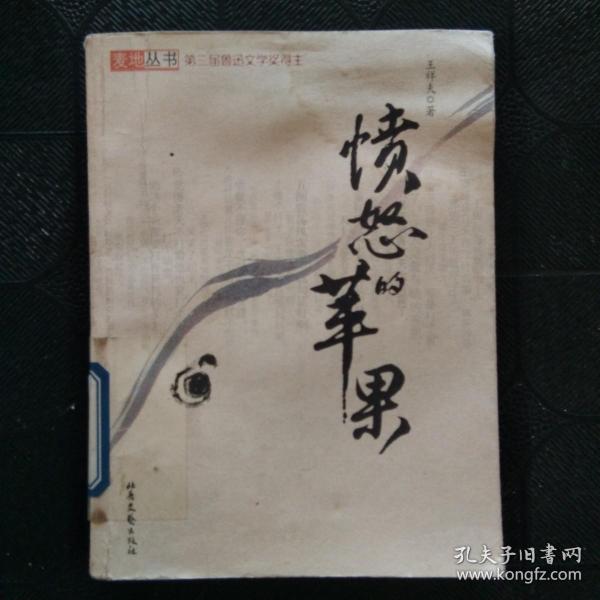 麦地丛书 第三届鲁迅文学奖得主
王祥夫◎著
愤怒的苹果
北岳文艺出版社
孔夫子旧书网
www.kongfz.com